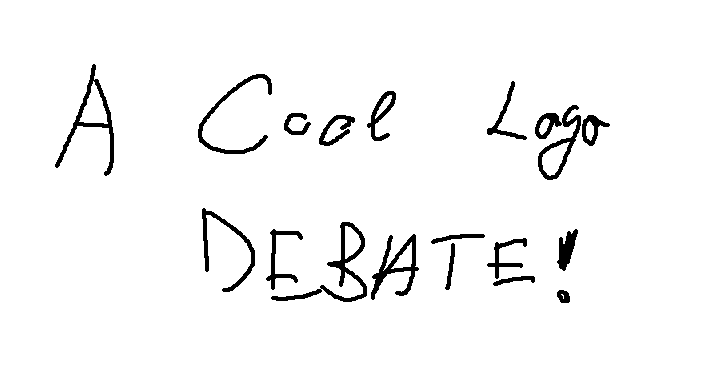 A Cool Logo
DEBATE!